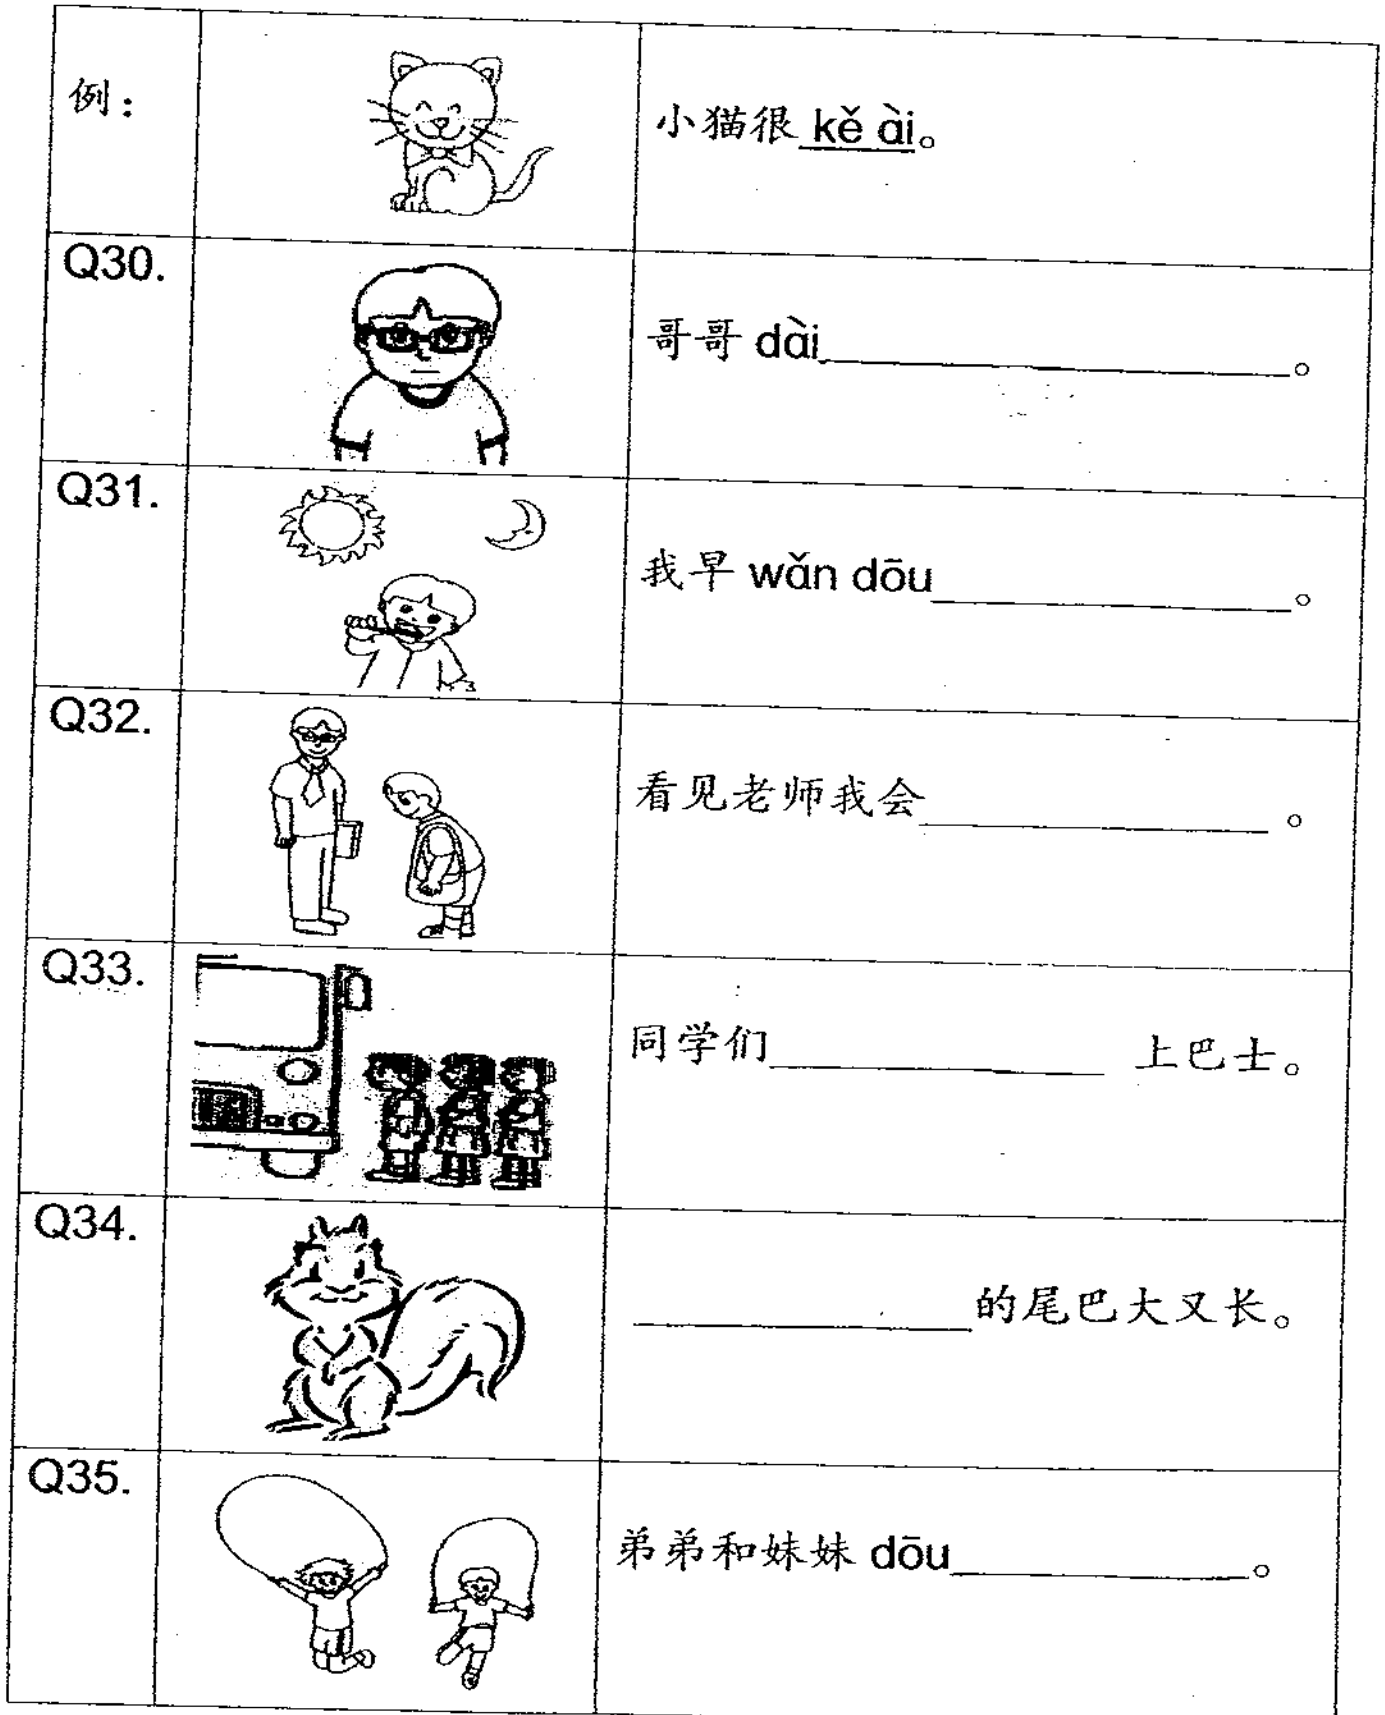 例：
小猫很 kě ài。
Q30.
哥哥 dài____________________。
Q31.
我早 wǎn dōu_______________。
Q32.
看见老师我会_______________。
Q33.
同学们_______________ 上巴士。
Q34.
_______________的尾巴大又长。
Q35.
弟弟和妹妹 dōu_____________。